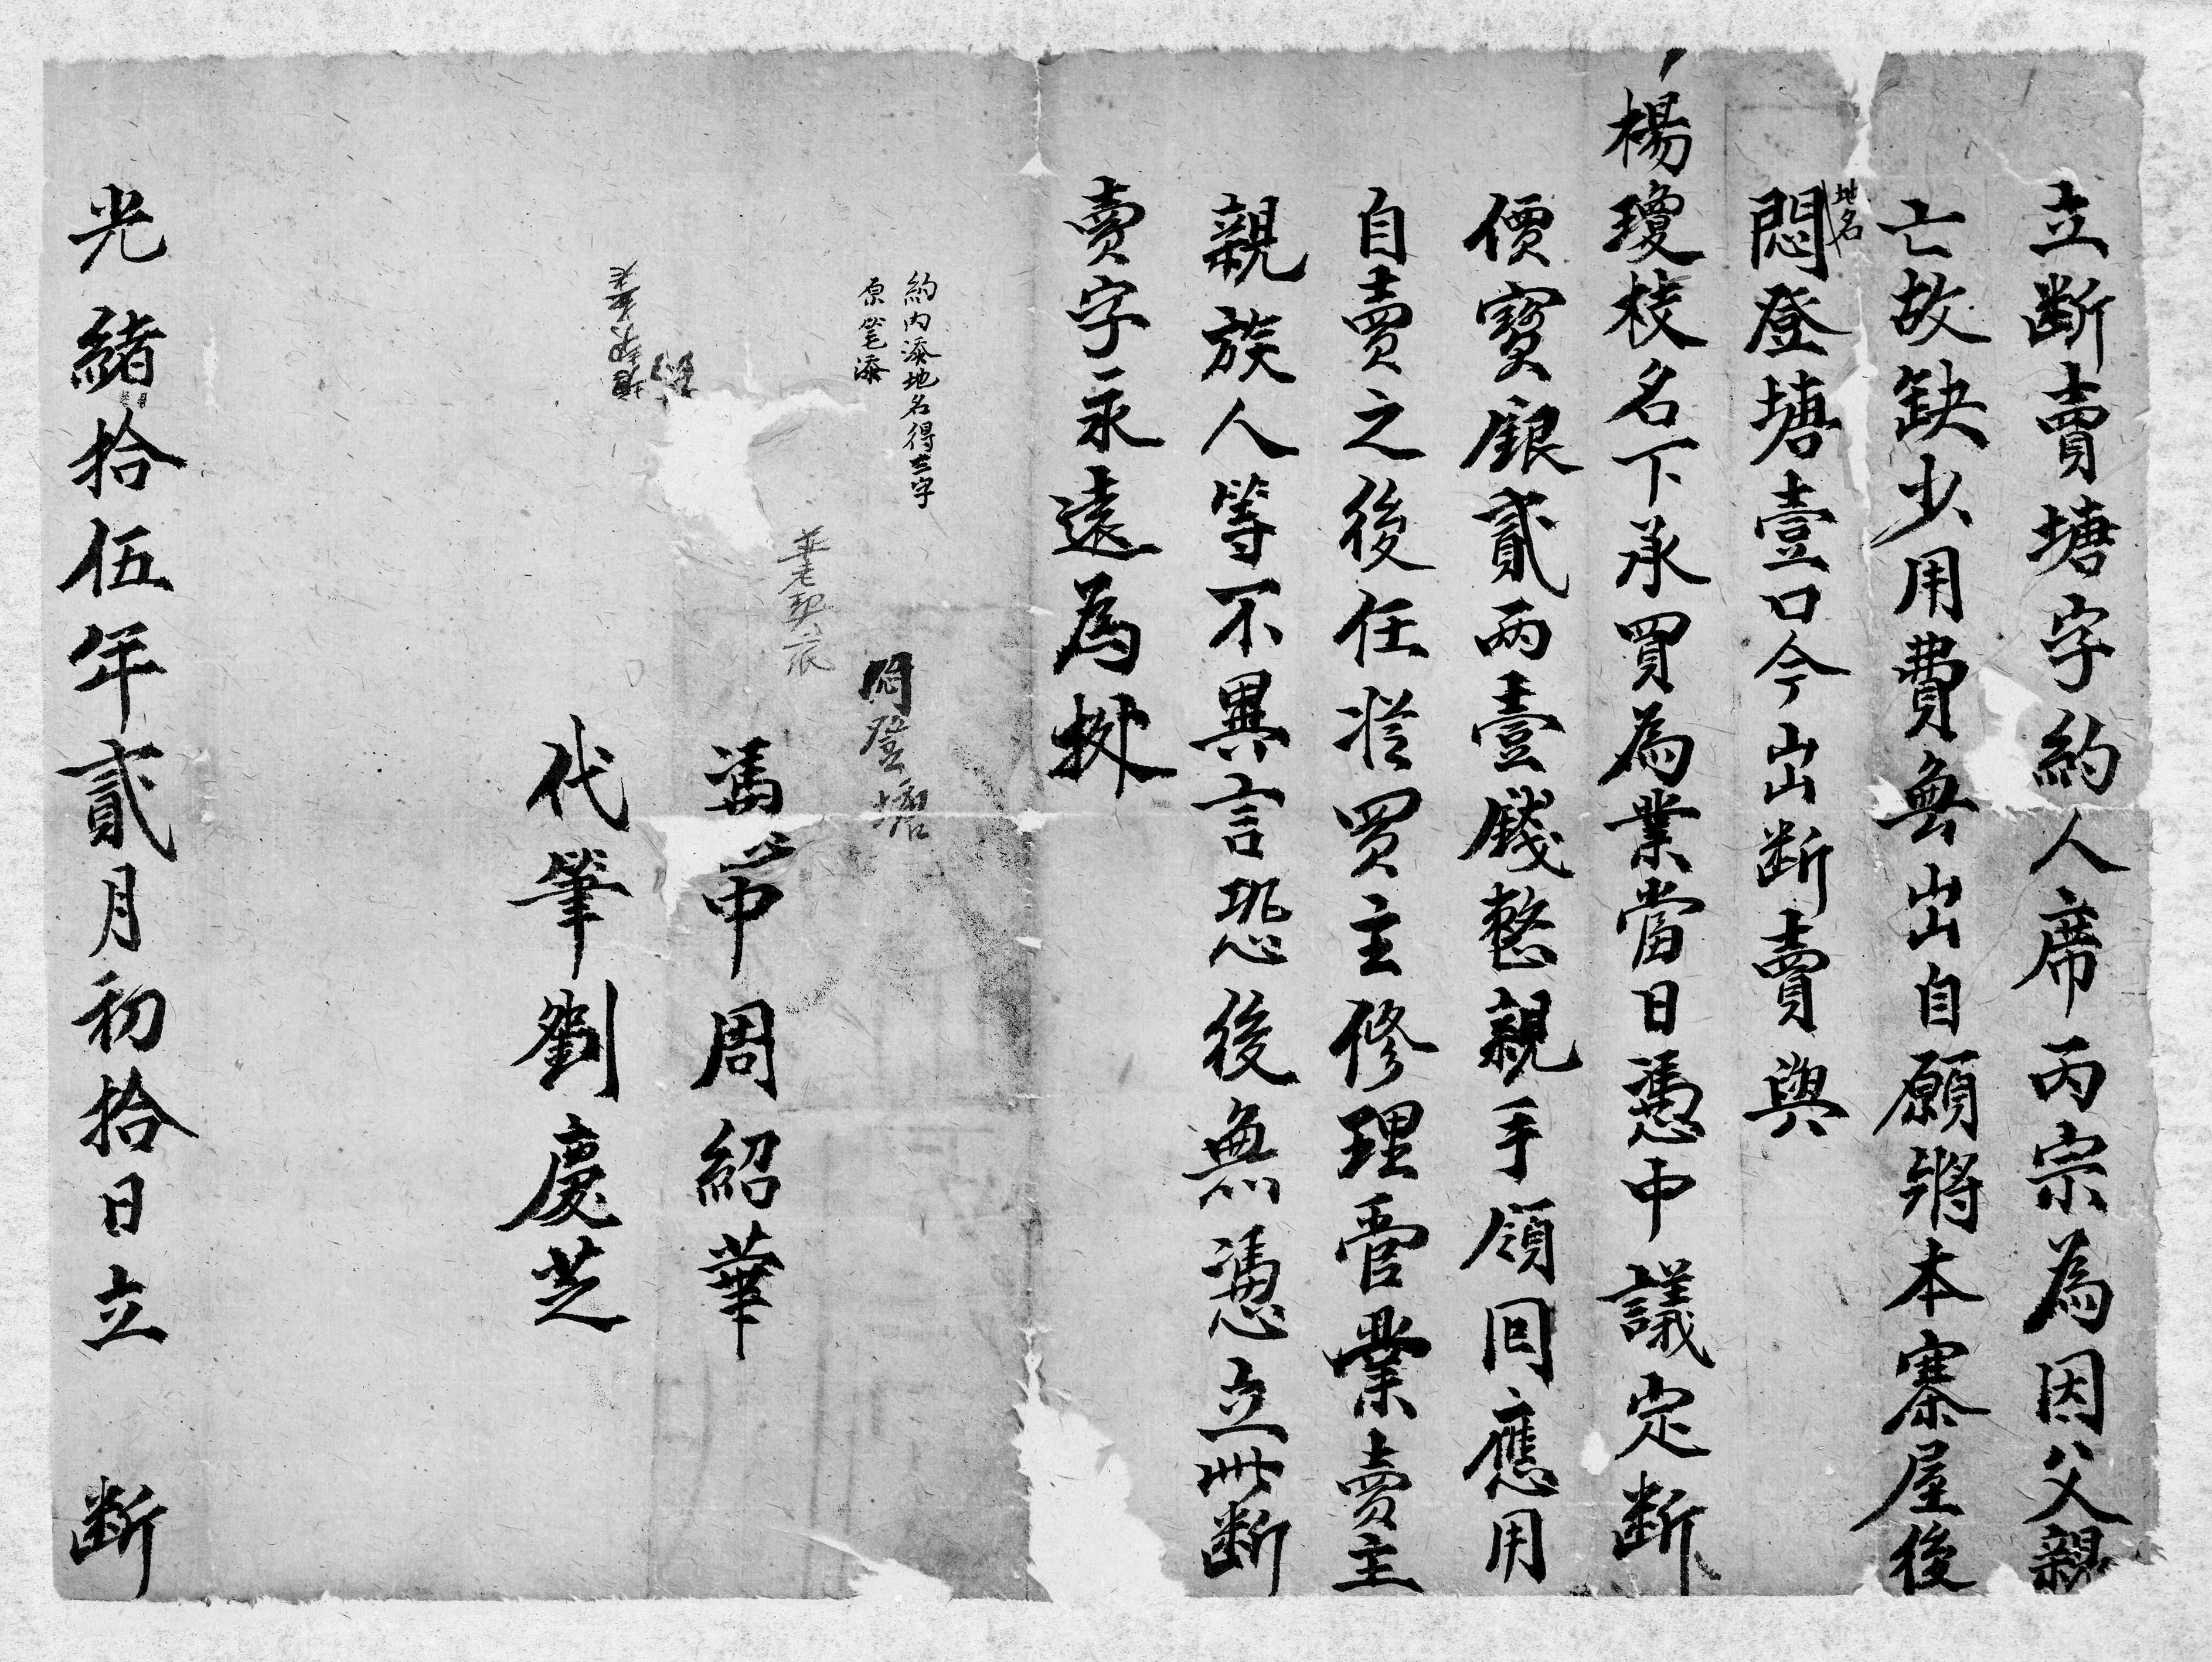 立断賣塘字約人席丙宗為因父親
亡故缺少用費無出自願將本寨屋後
地名
悶登塘壹口今出断賣與
楊瓊枝名下承買為業當日憑中議定断
價寶銀貳兩壹錢整親手領回應用
自賣之後任從買主修理管業賣主
親族人等不異言恐後無憑立此断
賣字永遠為據
約内添地名得三字
原筆添
悶登塘
筆老契底
憑中周紹華
代筆劉慶芝
光緒拾伍年貳月初拾日立 断